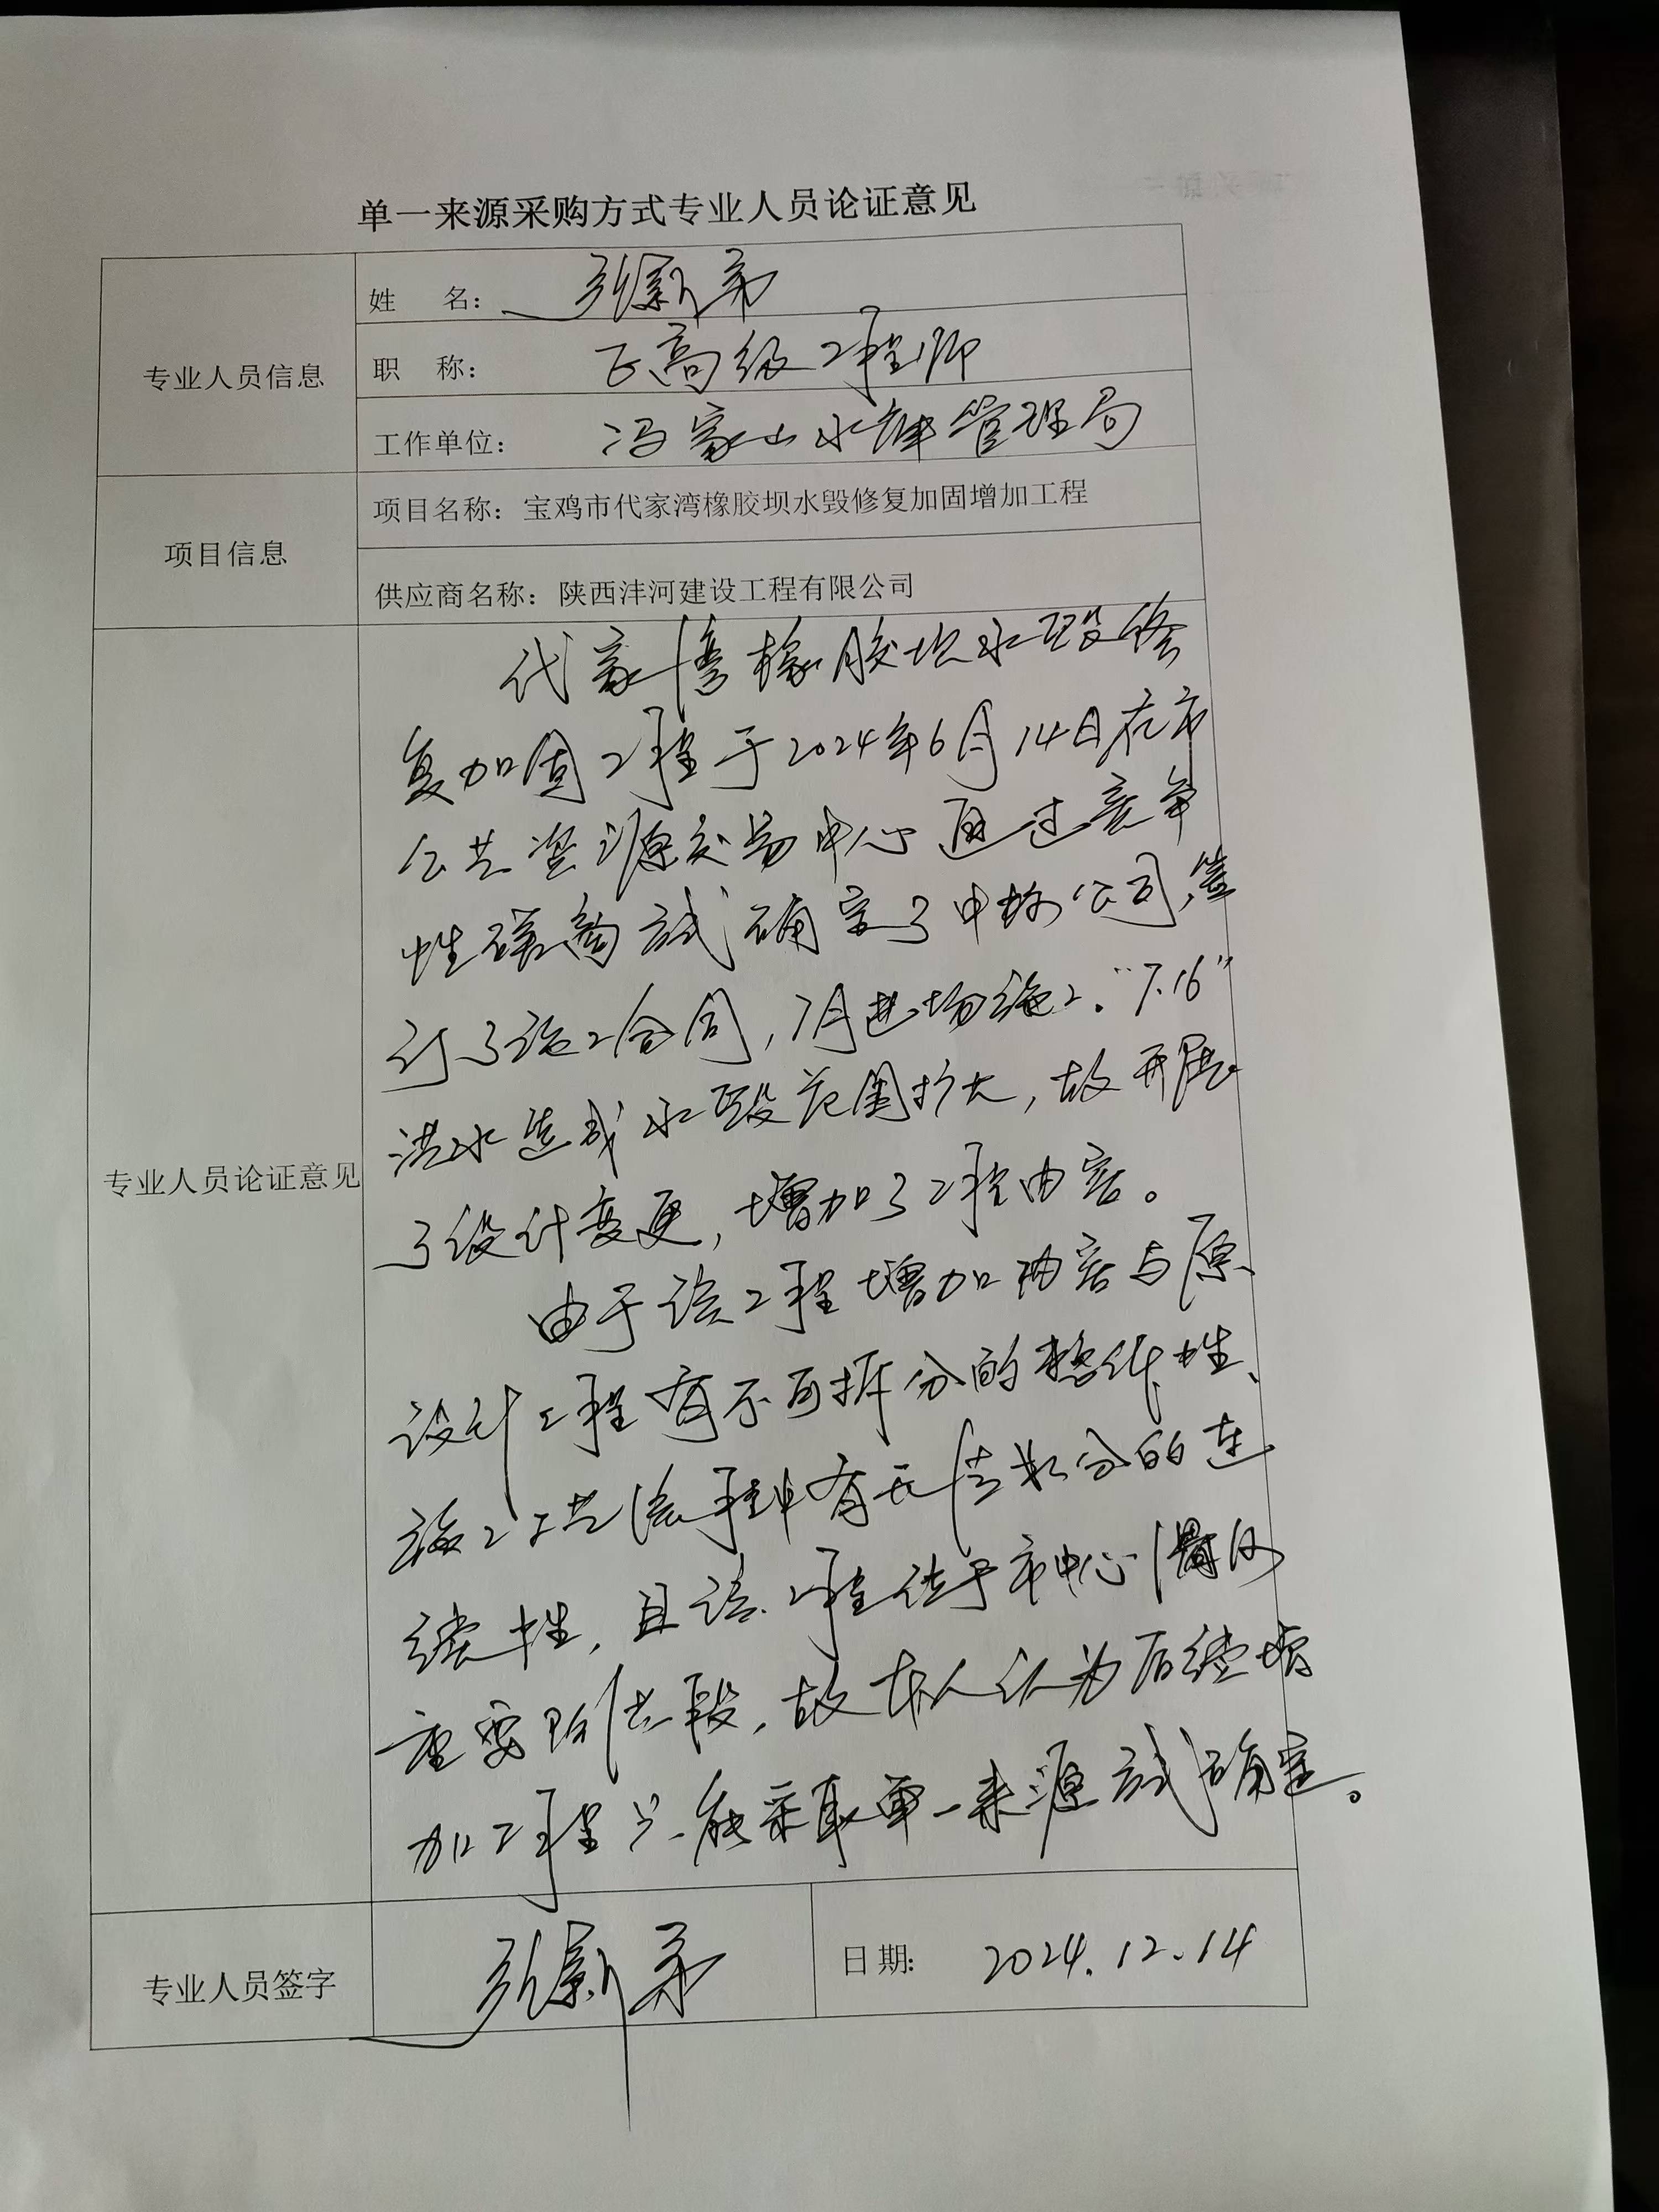 单一来源采购方式专业人员论证意见
专业人员信息
姓 名：张新弟
职 称：正高级工程师
工作单位：冯家山水库管理局
项目信息
项目名称：宝鸡市代家湾橡胶坝水毁修复加固增加工程
供应商名称：陕西沣河建设工程有限公司
专业人员论证意见
代家湾橡胶坝水毁修
复加固工程于2024年6月14日在市
公共资源交易中心通过竞争
性磋商方式确定了中标公司,签
订了施工合同,7月进场施工."7.16"
洪水造成水毁范围扩大,故开展
了设计变更,增加了工程内容。
由于该工程增加内容与原
设计工程有不可拆分的整体性、
施工工艺流程中有无法划分的连
续性,且该工程位于市中心渭河
重要防洪段,故本人认为后续增
加工程只能采取单一来源方式确定。
专业人员签字
张新弟
日期：2024.12.14